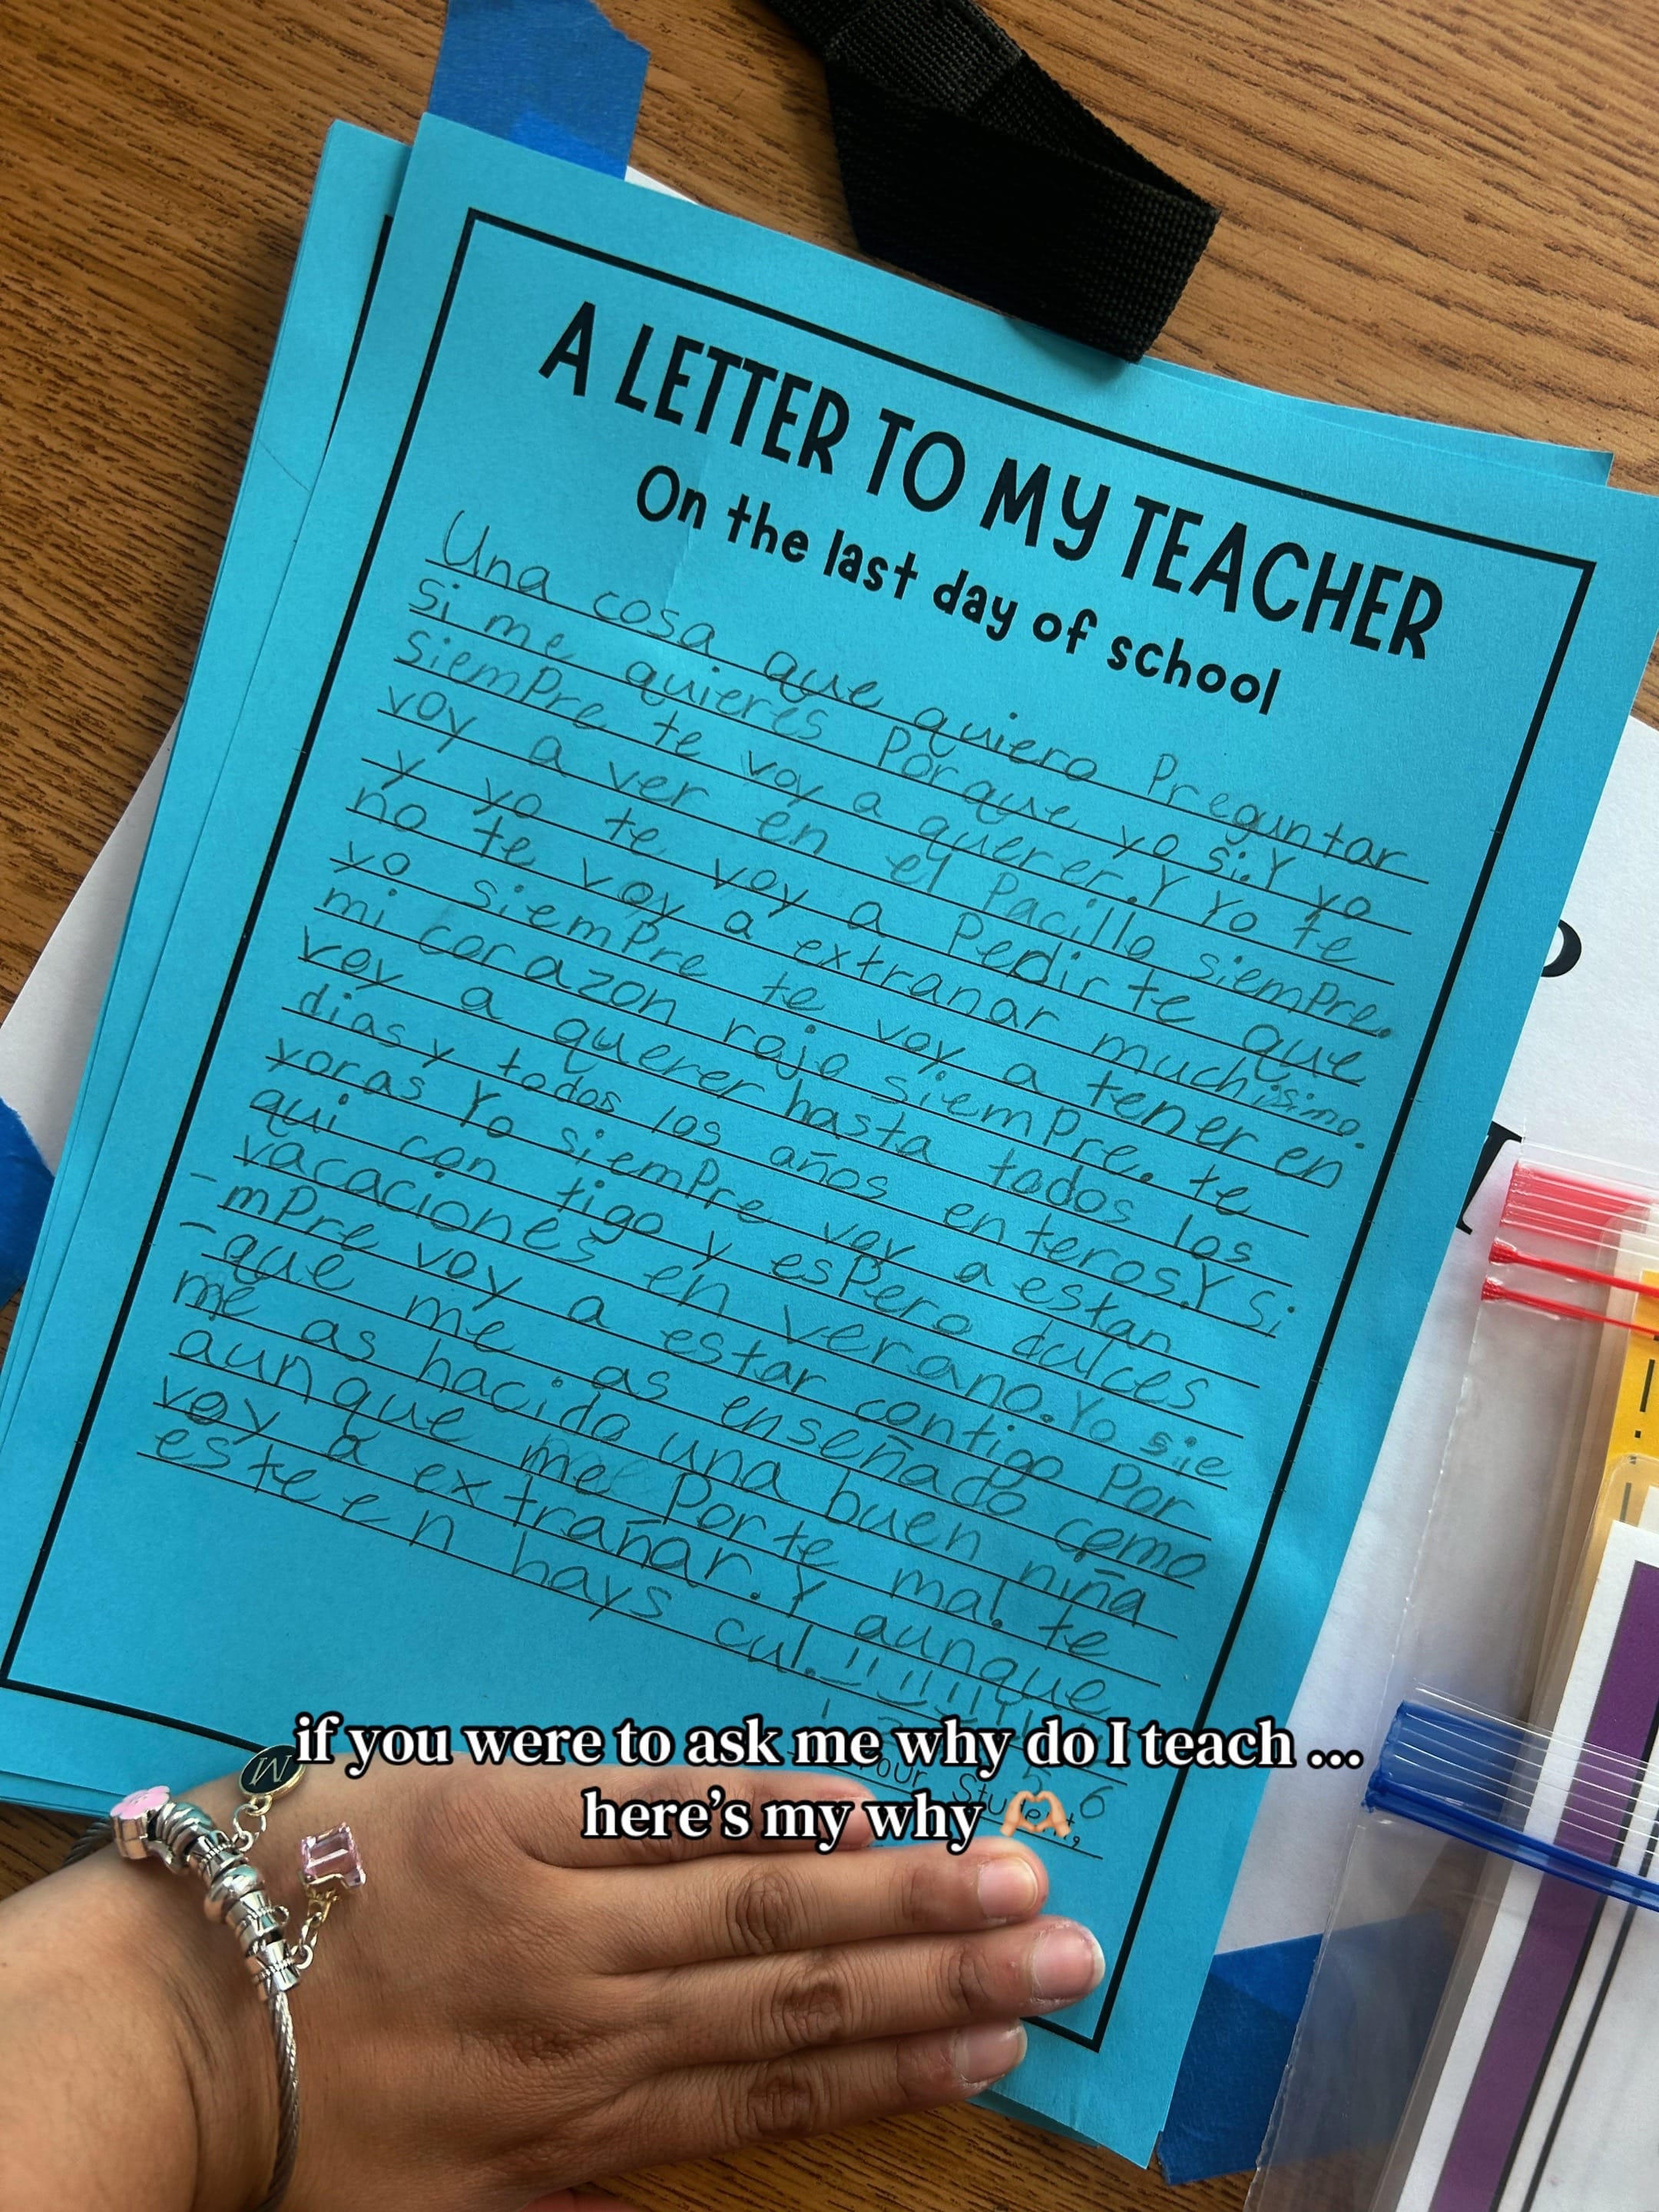 A LETTER TO MY TEACHER
On the last day of school
Una cosa que quiero Preguntar
si me quieres Porque yo si.Y yo
siempre te voy a querer.Y Yo te
voy a ver en el Pacillo siempre.
y yo te voy a Pedir te que
no te voy a extranar muchisimo.
yo siempre te voy a tener en
mi corazon rojo siempre. te
voy a querer hasta todos los
dias y todos los años enteros.Y si
yoras Yo siempre voy a estan
qui con tigo y espero dulces
vacaciones en verano.Yo sie
-mpre voy a estar contigo Por
-que me as enseñado como
me as hacido una buen niña
aunque me Porte mal. te
voy a extrañar. Y aunque
este en hays cul.
if you were to ask me why do I teach ...
here's my why 🫶🏼